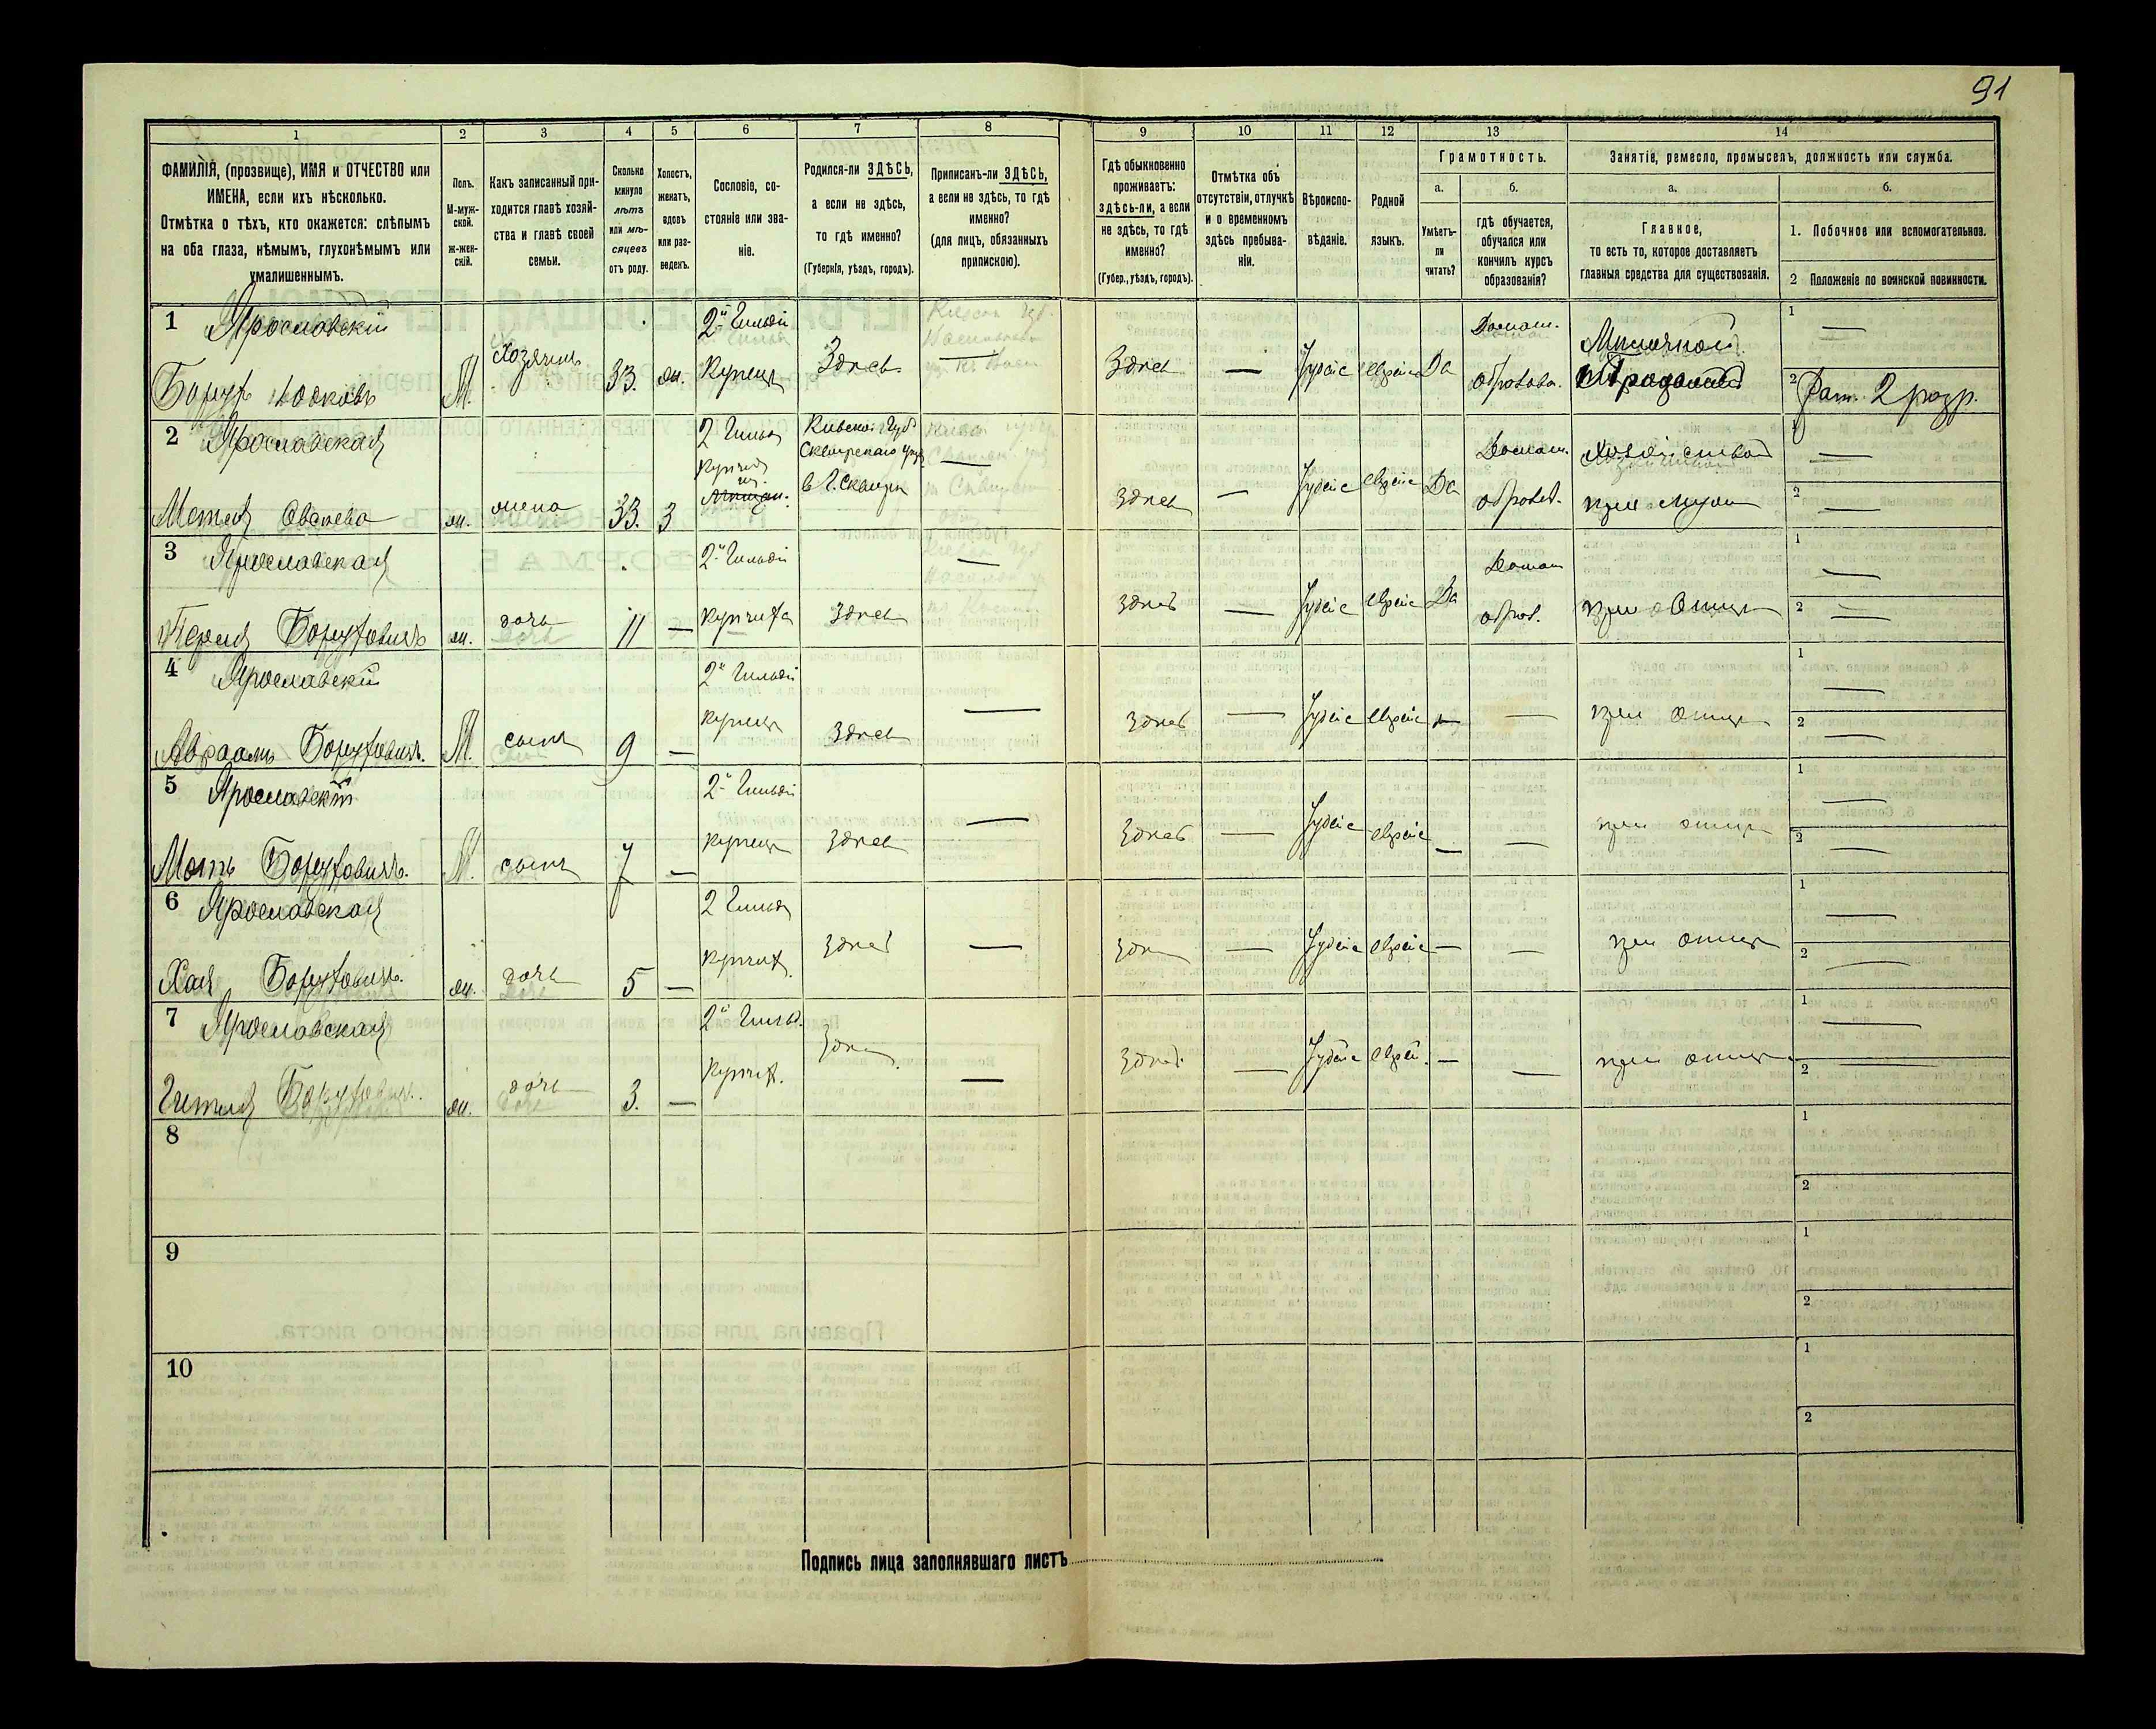 91
1
2
3
4
5
6
7
8
9
10
11
12
13
14
ФАМИЛІЯ, (прозвище), ИМЯ и ОТЧЕСТВО или
ИМЕНА, если ихъ нѣсколько.
Отмѣтка о тѣхъ, кто окажется: слѣпымъ
на оба глаза, нѣмымъ, глухонѣмымъ или
умалишеннымъ.
Полъ.
М-муж-
ской.
ж-жен-
скій.
Какъ записанный при-
ходится главѣ хозяй-
ства и главѣ своей
семьи.
Сколько
минуло
лѣтъ
или мѣ-
сяцевъ
отъ роду.
Холостъ,
женатъ,
вдовъ
или раз-
веденъ.
Сословіе, со-
стояніе или зва-
ніе.
Родился-ли ЗДѢСЬ,
а если не здѣсь,
то гдѣ именно?
(Губернія, уѣздъ, городъ).
Приписанъ-ли ЗДѢСЬ,
а если не здѣсь, то гдѣ
именно?
(для лицъ, обязанныхъ
припискою).
Гдѣ обыкновенно
проживаетъ:
здѣсь-ли, а если
не здѣсь, то гдѣ
именно?
(Губер., уѣздъ, городъ).
Отмѣтка объ
отсутствіи, отлучкѣ
и о временномъ
здѣсь пребыва-
ніи.
Вѣроиспо-
вѣданіе.
Родной
языкъ.
Грамотность.
а.
Умѣетъ-
ли
читать?
б.
гдѣ обучается,
обучался или
кончилъ курсъ
образованія?
Занятіе, ремесло, промыселъ, должность или служба.
а.
Главное,
то есть то, которое доставляетъ
главныя средства для существованія.
б.
1. Побочное или вспомогательное.
2 Положеніе по воинской повинности.
1 Ярославскій
Борухъ Іосковъ
М.
Хозяинъ
33.
ж.
2й Гильдіи
Купецъ
Здѣсь
—
Здѣсь
—
Іудейс
еврейс
Да
Домаш.
образова.
1 —
2 Рат. 2 разр.
2 Ярославская
ж.
жена
33.
З
2 Гильд
Кіевской Губ
Сквирскаго уѣз
в Г. Сквирѣ
—
Здѣсь
—
Іудейс
еврейс
Да
Домаш.
образов.
Хозяйство
при мужѣ
1 —
2 —
3 Ярославская
Перля Боруховичъ
ж.
дочь
11
—
2й Гильдіи
Купчиха
Здѣсь
—
Здѣсь
—
Іудейс
еврейс
Да
Домаш
образ.
при Отцѣ
1 —
2 —
4 Ярославскій
Авраамъ Боруховичъ.
М.
сынъ
9
—
2й Гильдіи
купецъ
Здѣсь
—
Здѣсь
—
Іудейс
еврейс
—
—
при отцѣ
1 —
2 —
5 Ярославскій
Мотъ Боруховичъ.
М.
сынъ
7
—
2й Гильдіи
купецъ
Здѣсь
—
Здѣсь
—
Іудейс
еврейс
—
—
при отцѣ
1 —
2 —
6 Ярославская
Хая Боруховичъ.
ж.
дочь
5
—
2 Гильд
Купчих.
Здѣсь
—
Здѣс
—
Іудейс
еврейс
—
—
при отцѣ
1 —
2 —
7 Ярославская
Гителя Борухович.
ж.
дочь
3.
—
2й Гильд.
Купчих.
Здѣс
—
Здѣс.
—
Іудейс
еврей.
—
—
при отцѣ
1 —
2 —
8
1
2
9
1
2
10
1
2
Подпись лица заполнявшаго листъ